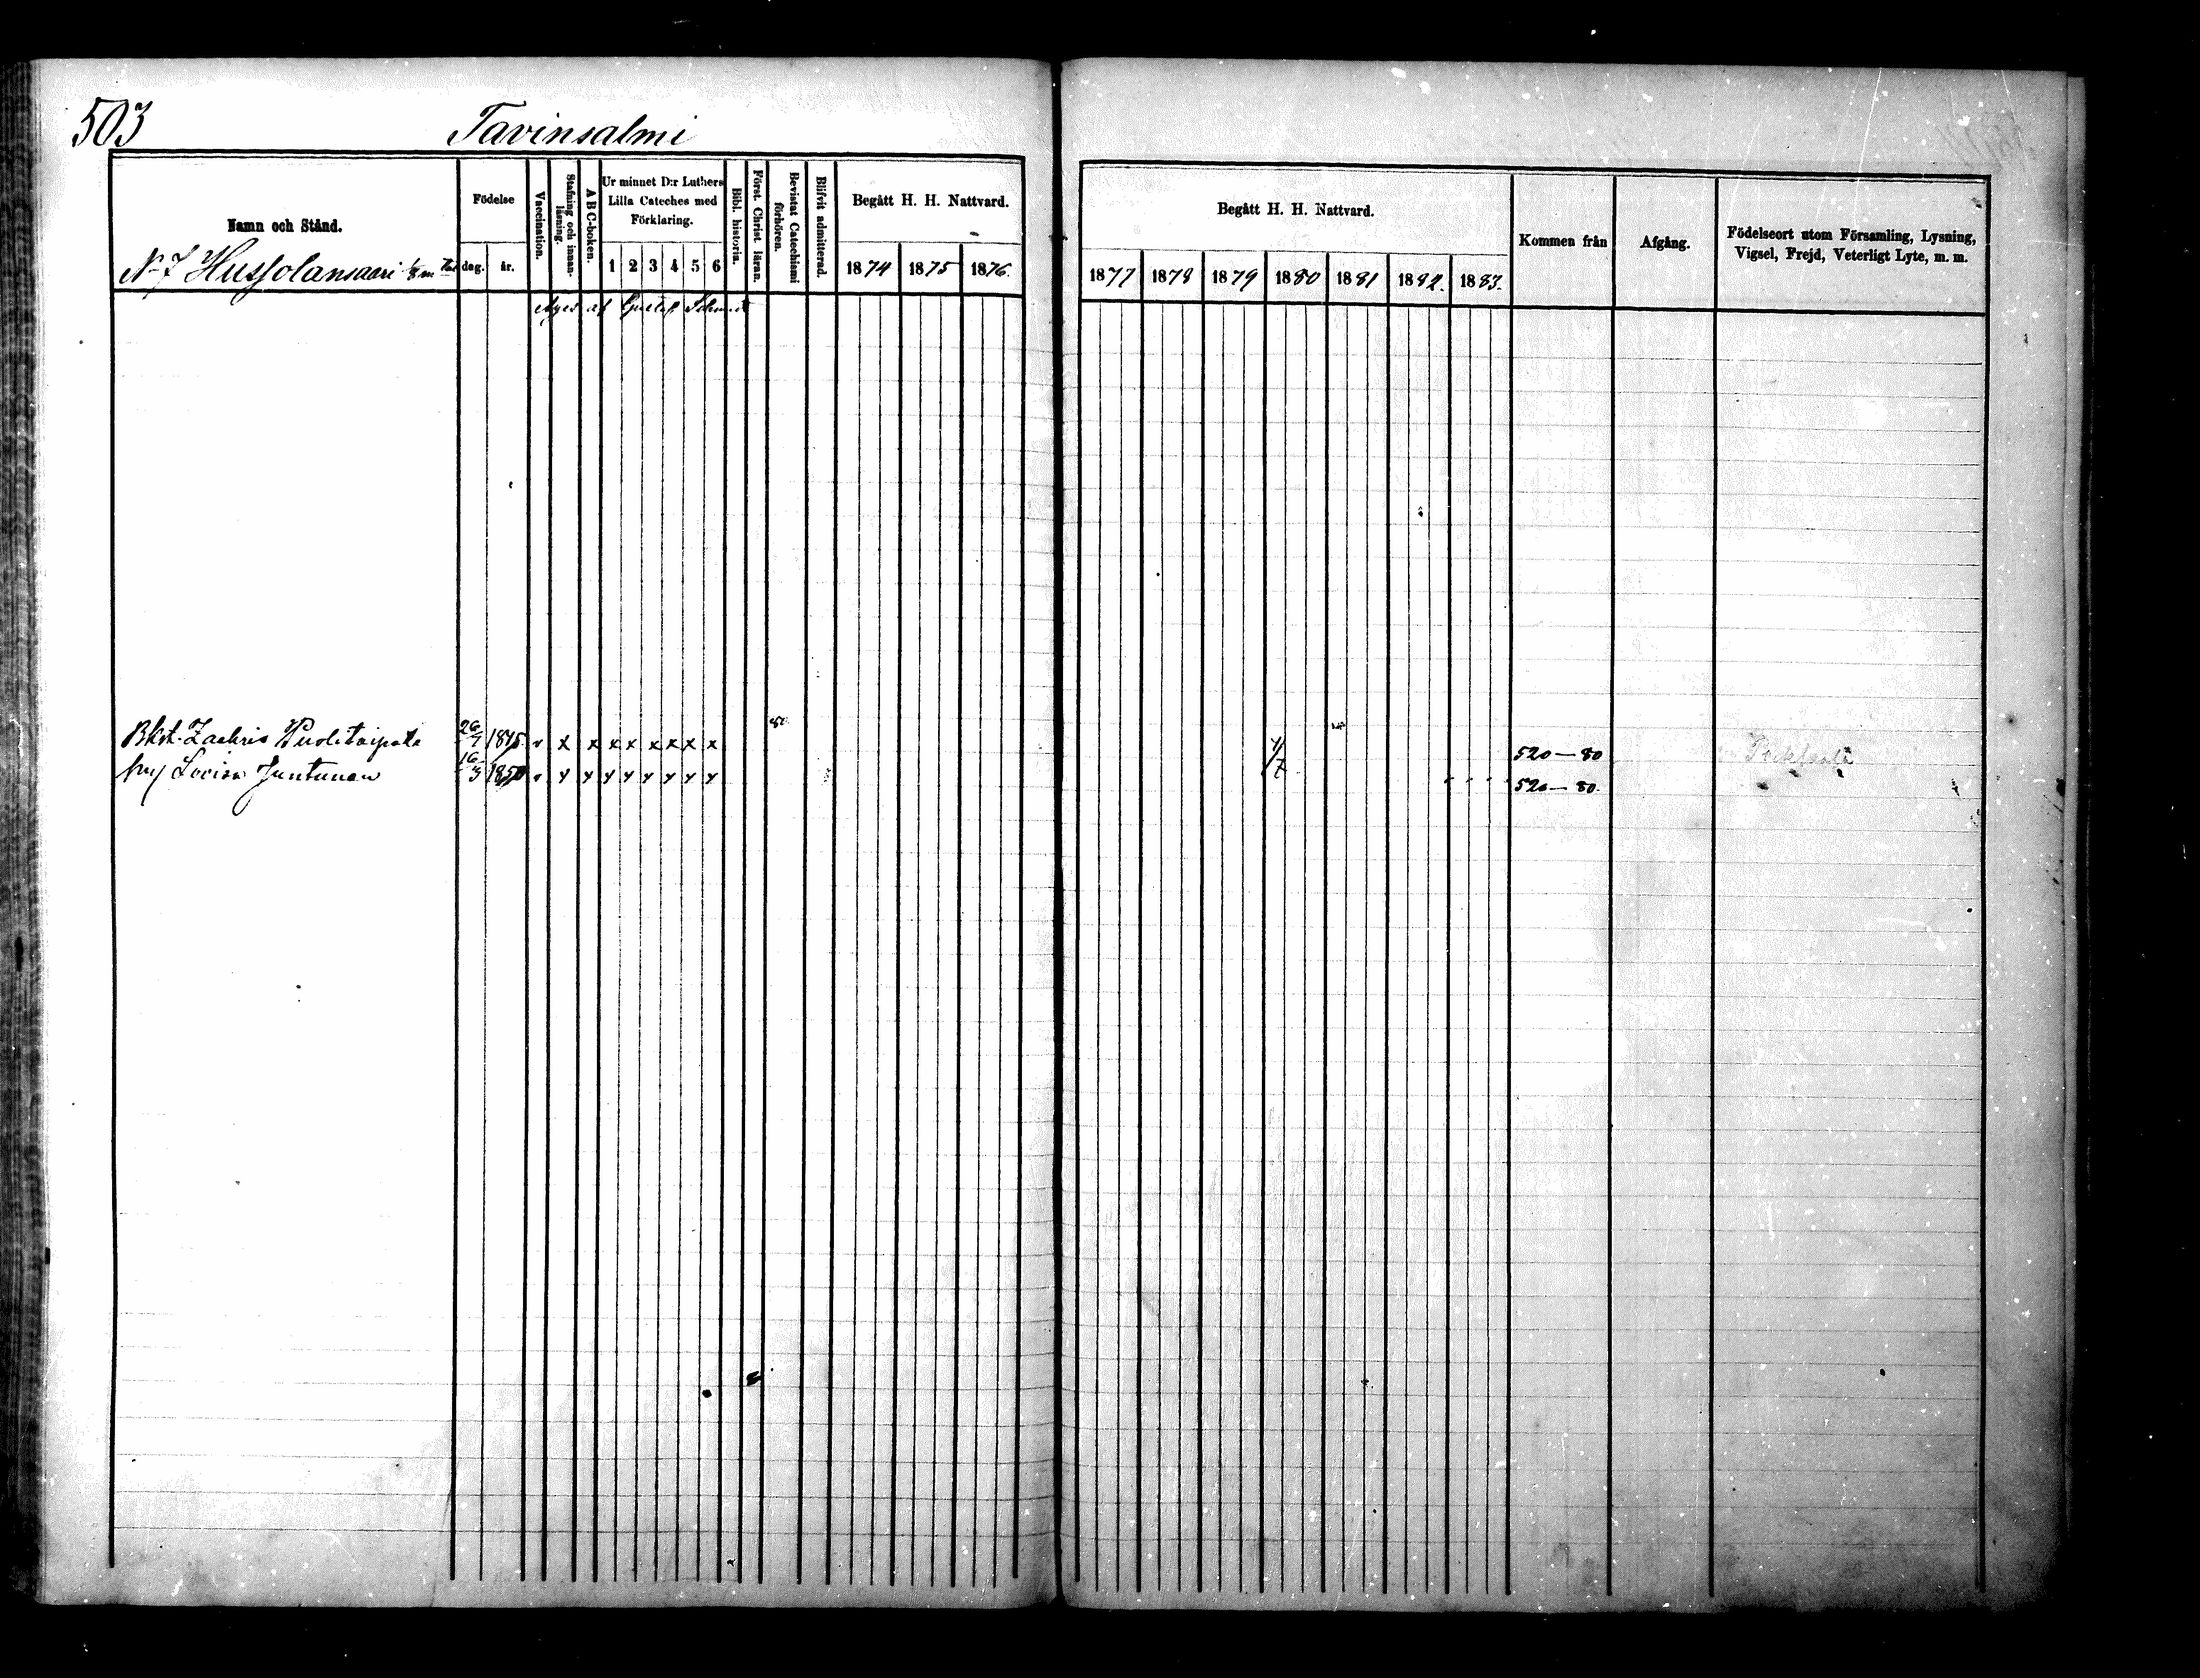 503 Tavinsalmi
Namn och Stånd.
No 7 Hussolansaari
Födelse
dag. år.
Vaccination.
Stafning och innanläsning.
A B C-boken.
Ur minnet D:r Luthers
Lilla Cateches med
Förklaring.
1 2 3 4 5 6
Bibl. historia.
Först. Christ. läran.
Bevistat Catechismi förhören.
Blifvit admitterad.
Begått H. H. Nattvard.
1874 1875 1876.
Begått H. H. Nattvard.
1877 1878 1879 1880 1881 1882. 1883.
Kommen från
Afgång.
Födelseort utom Församling, Lysning,
Vigsel, Frejd, Veterligt Lyte, m. m.
Äges af Gustaf
Bkst. Zachris 26/7 1845 v x x x x x x x x 520—80
hu Lovisa Juntunen 16/3 1850 v x x x x x x x x 520—80.